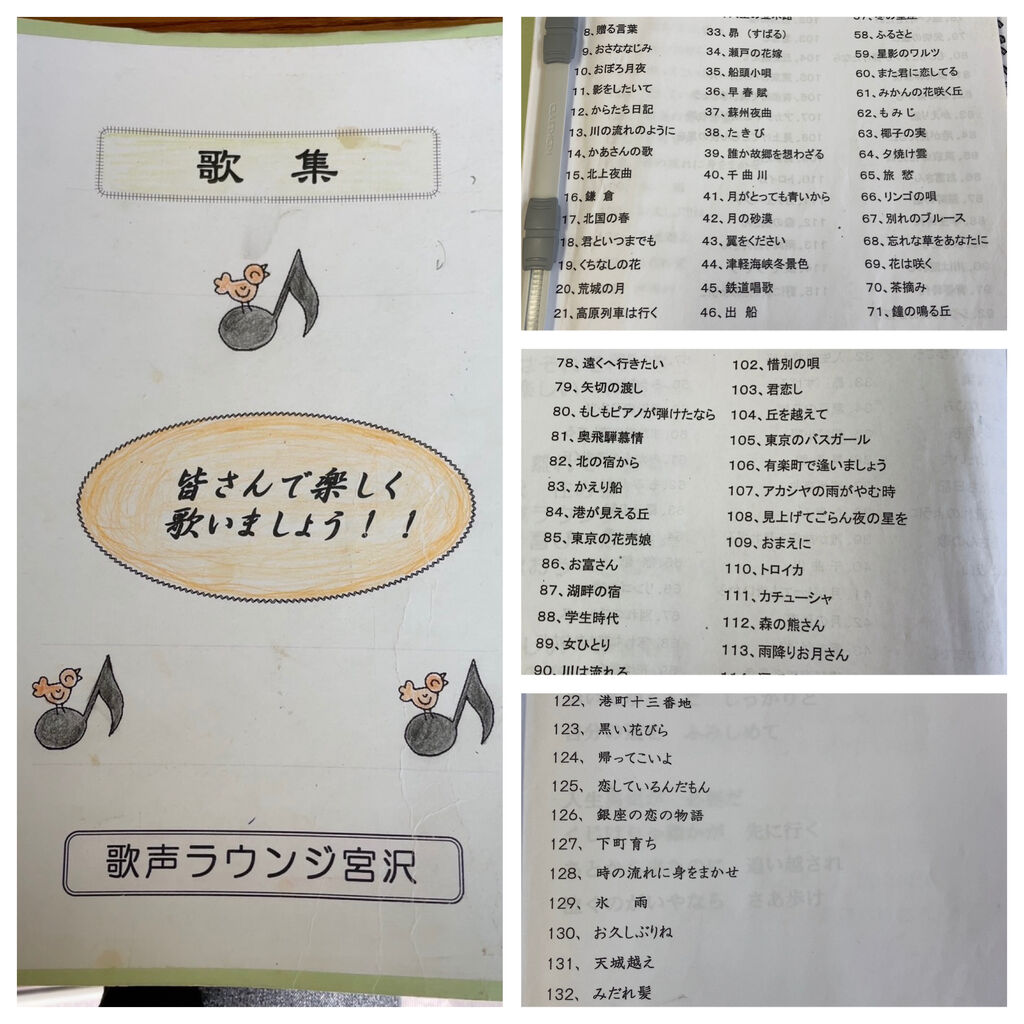 歌 集
皆さんで楽しく
歌いましょう！！
歌声ラウンジ宮沢
8、贈る言葉
9、おさななじみ
10、おぼろ月夜
11、影をしたいて
12、からたち日記
13、川の流れのように
14、かあさんの歌
15、北上夜曲
16、鎌 倉
17、北国の春
18、君といつまでも
19、くちなしの花
20、荒城の月
21、高原列車は行く
33、昴 （すばる）
34、瀬戸の花嫁
35、船頭小唄
36、早 春 賦
37、蘇州夜曲
38、た き び
39、誰か故郷を想わざる
40、千 曲 川
41、月がとっても青いから
42、月の砂漠
43、翼をください
44、津軽海峡冬景色
45、鉄道唱歌
46、出 船
58、ふるさと
59、星影のワルツ
60、また君に恋してる
61、みかんの花咲く丘
62、も み じ
63、椰子の実
64、夕焼け雲
65、旅 愁
66、リンゴの唄
67、別れのブルース
68、忘れな草をあなたに
69、花は咲く
70、茶摘み
71、鐘の鳴る丘
78、遠くへ行きたい
79、矢切の渡し
80、もしもピアノが弾けたなら
81、奥飛騨慕情
82、北の宿から
83、かえり船
84、港が見える丘
85、東京の花売娘
86、お富さん
87、湖畔の宿
88、学生時代
89、女ひとり
90、川は流れる
102、惜別の唄
103、君恋し
104、丘を越えて
105、東京のバスガール
106、有楽町で逢いましょう
107、アカシヤの雨がやむ時
108、見上げてごらん夜の星を
109、おまえに
110、トロイカ
111、カチューシャ
112、森の熊さん
113、雨降りお月さん
122、港町十三番地
123、黒い花びら
124、帰ってこいよ
125、恋しているんだもん
126、銀座の恋の物語
127、下町育ち
128、時の流れに身をまかせ
129、氷 雨
130、お久しぶりね
131、天城越え
132、みだれ髪